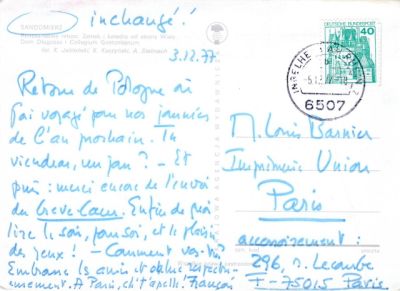 inchangé!
SANDOMIERZ
3.12.77
Retour de Pologne où
j'ai voyagé pour nos journées
de l'an prochain. Tu
viendras, un jour ? – Et
puis : merci encore de l'envoi
du . Enfin de quoi
lire le soir, pour soi, et le plaisir
des yeux ! – Comment vas-tu?
Embrasse les amis et
À Paris, François
DEUTSCHE BUNDESPOST
40
INGELHEIM AM RHEIN
6507
M. Louis Barnier
Imprimerie Union
Paris
accessoirement :
296, r. Lecourbe
F-75015 Paris